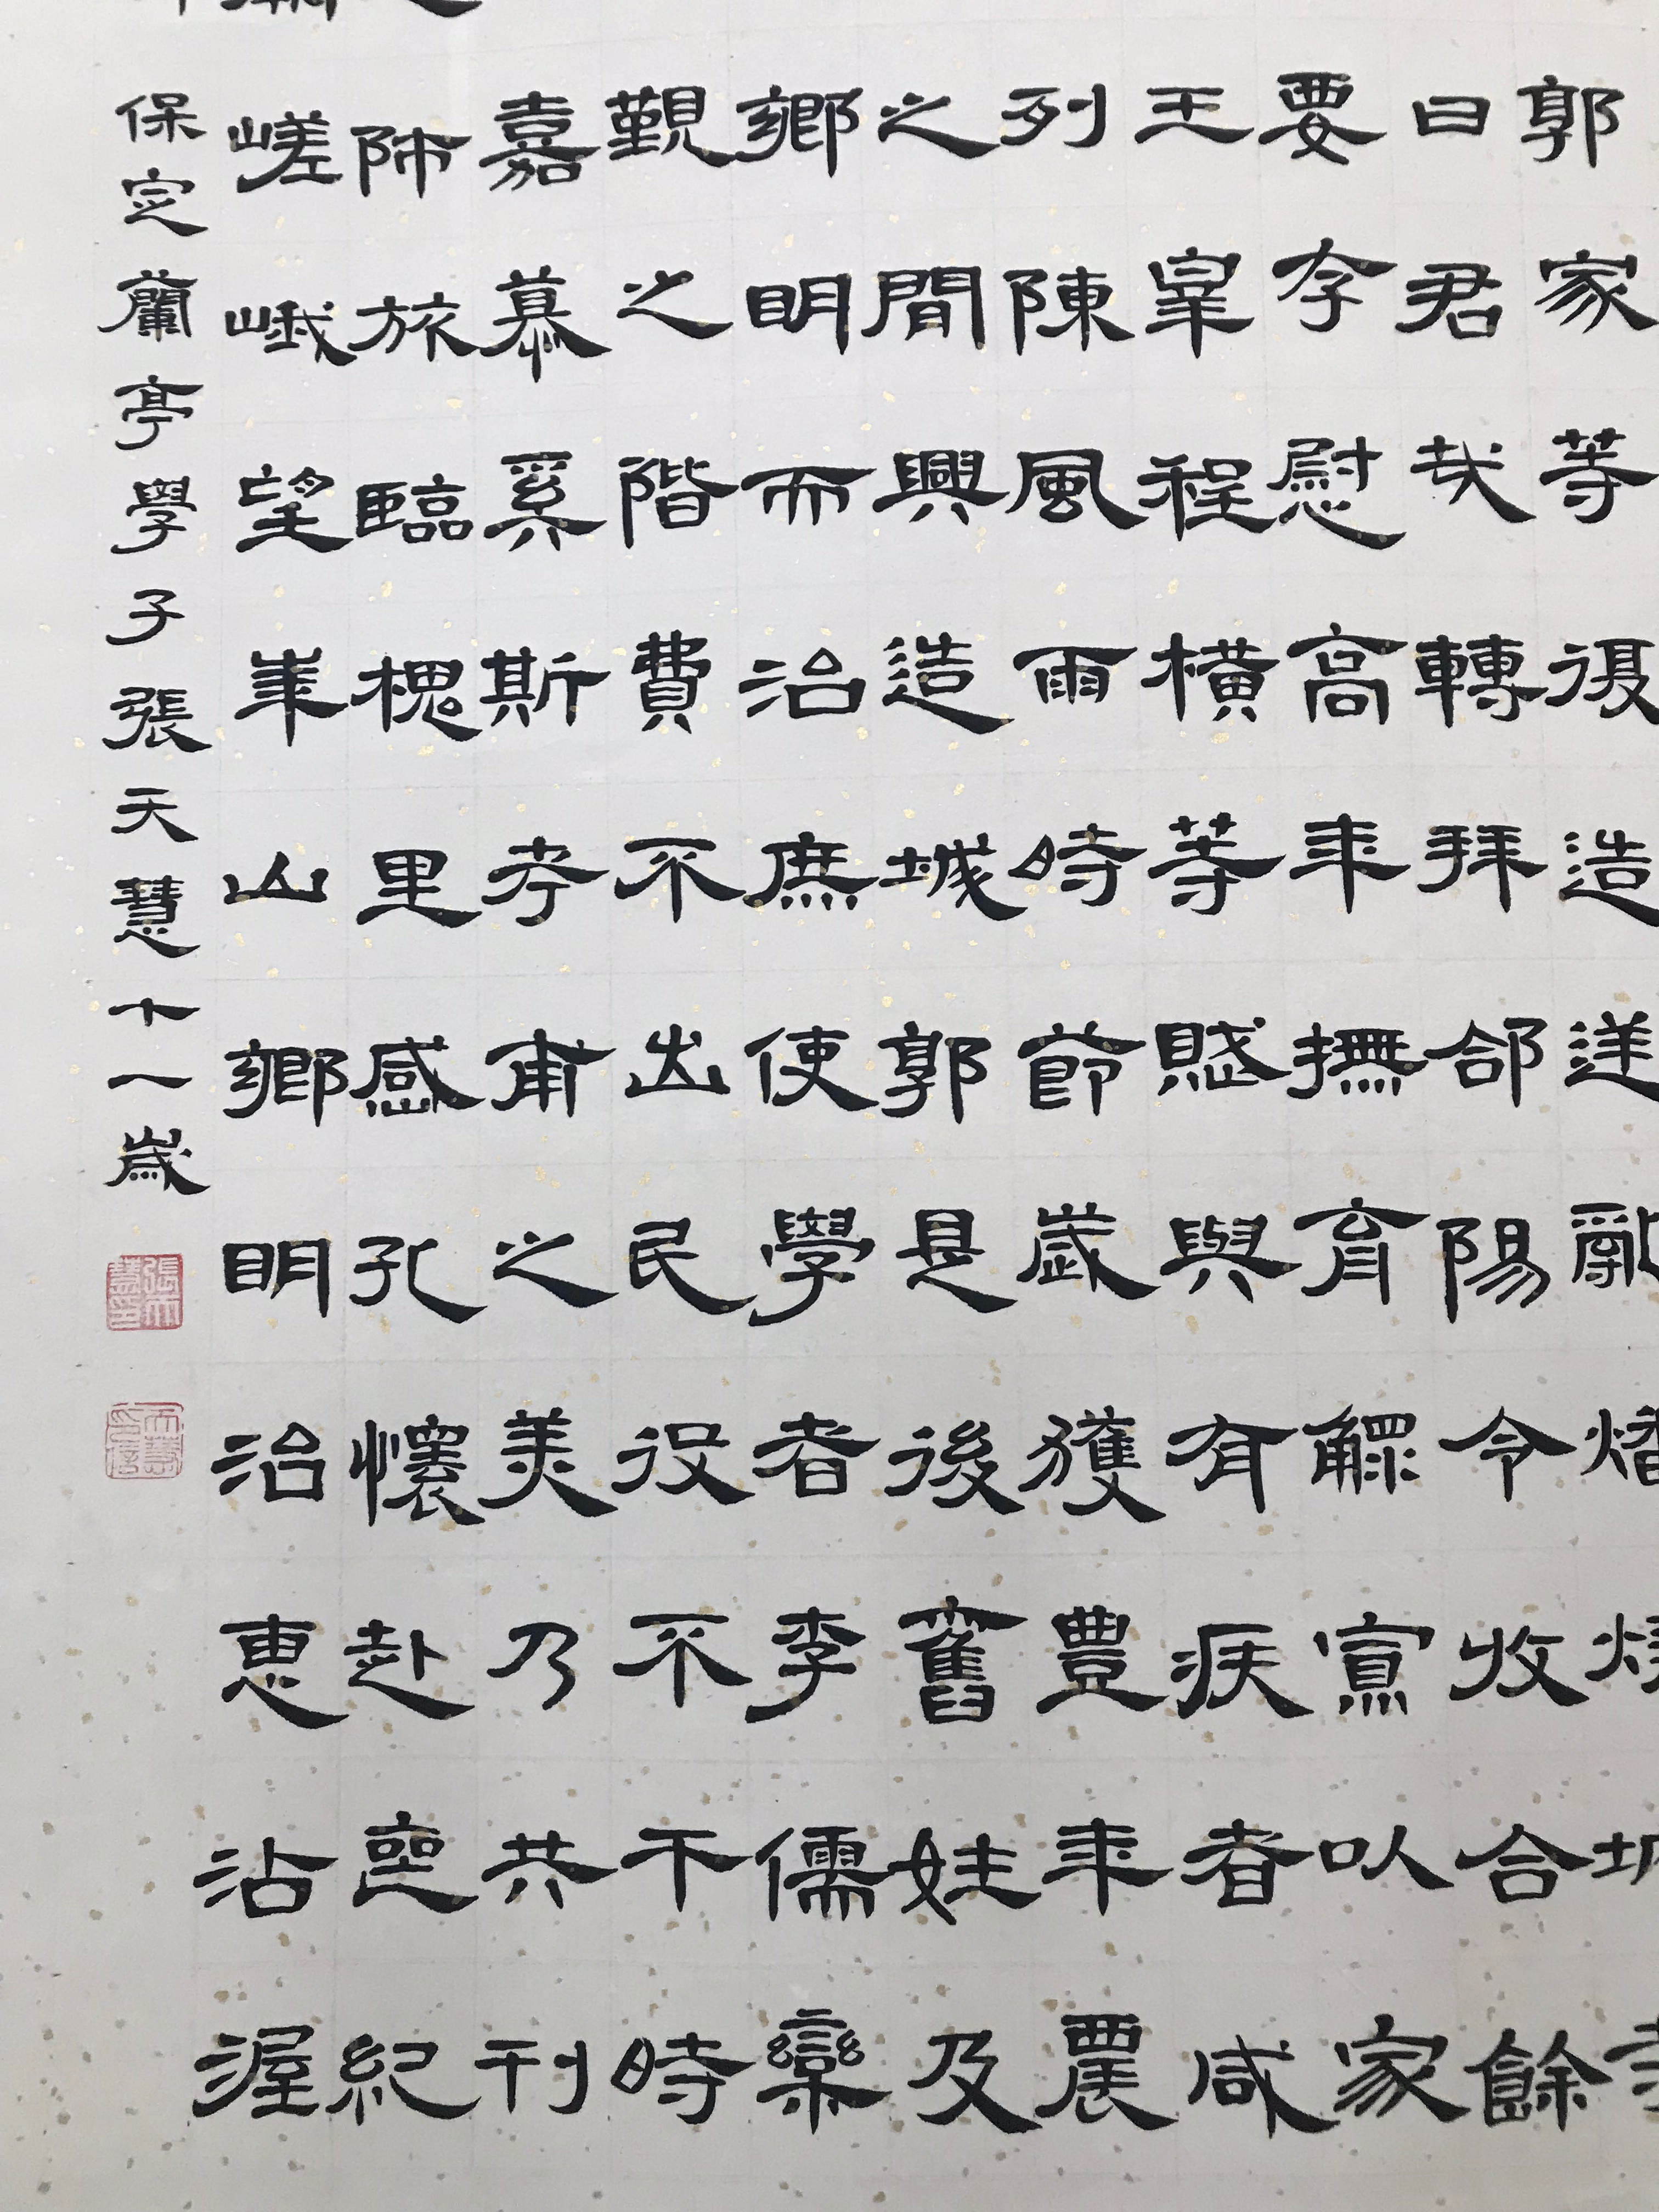 郭家等復造逆亂燔燒城寺
曰君哉轉拜郃陽令收合餘
要存慰高年撫育鰥寡以家
王皐程橫等賦與有疾者咸
列陳風雨時節歲獲豐年農
之間興造城郭是後舊姓及
鄉明而治庶使學者李儒欒
覲之階費不出民役不干時
嘉慕奚斯考甫之美乃共刊
師旅臨槐里感孔懷赴喪紀
嵯峨望華山鄉明治惠沾渥
保定蘭亭學子張天慧十一歲
張天慧印
天慧印信